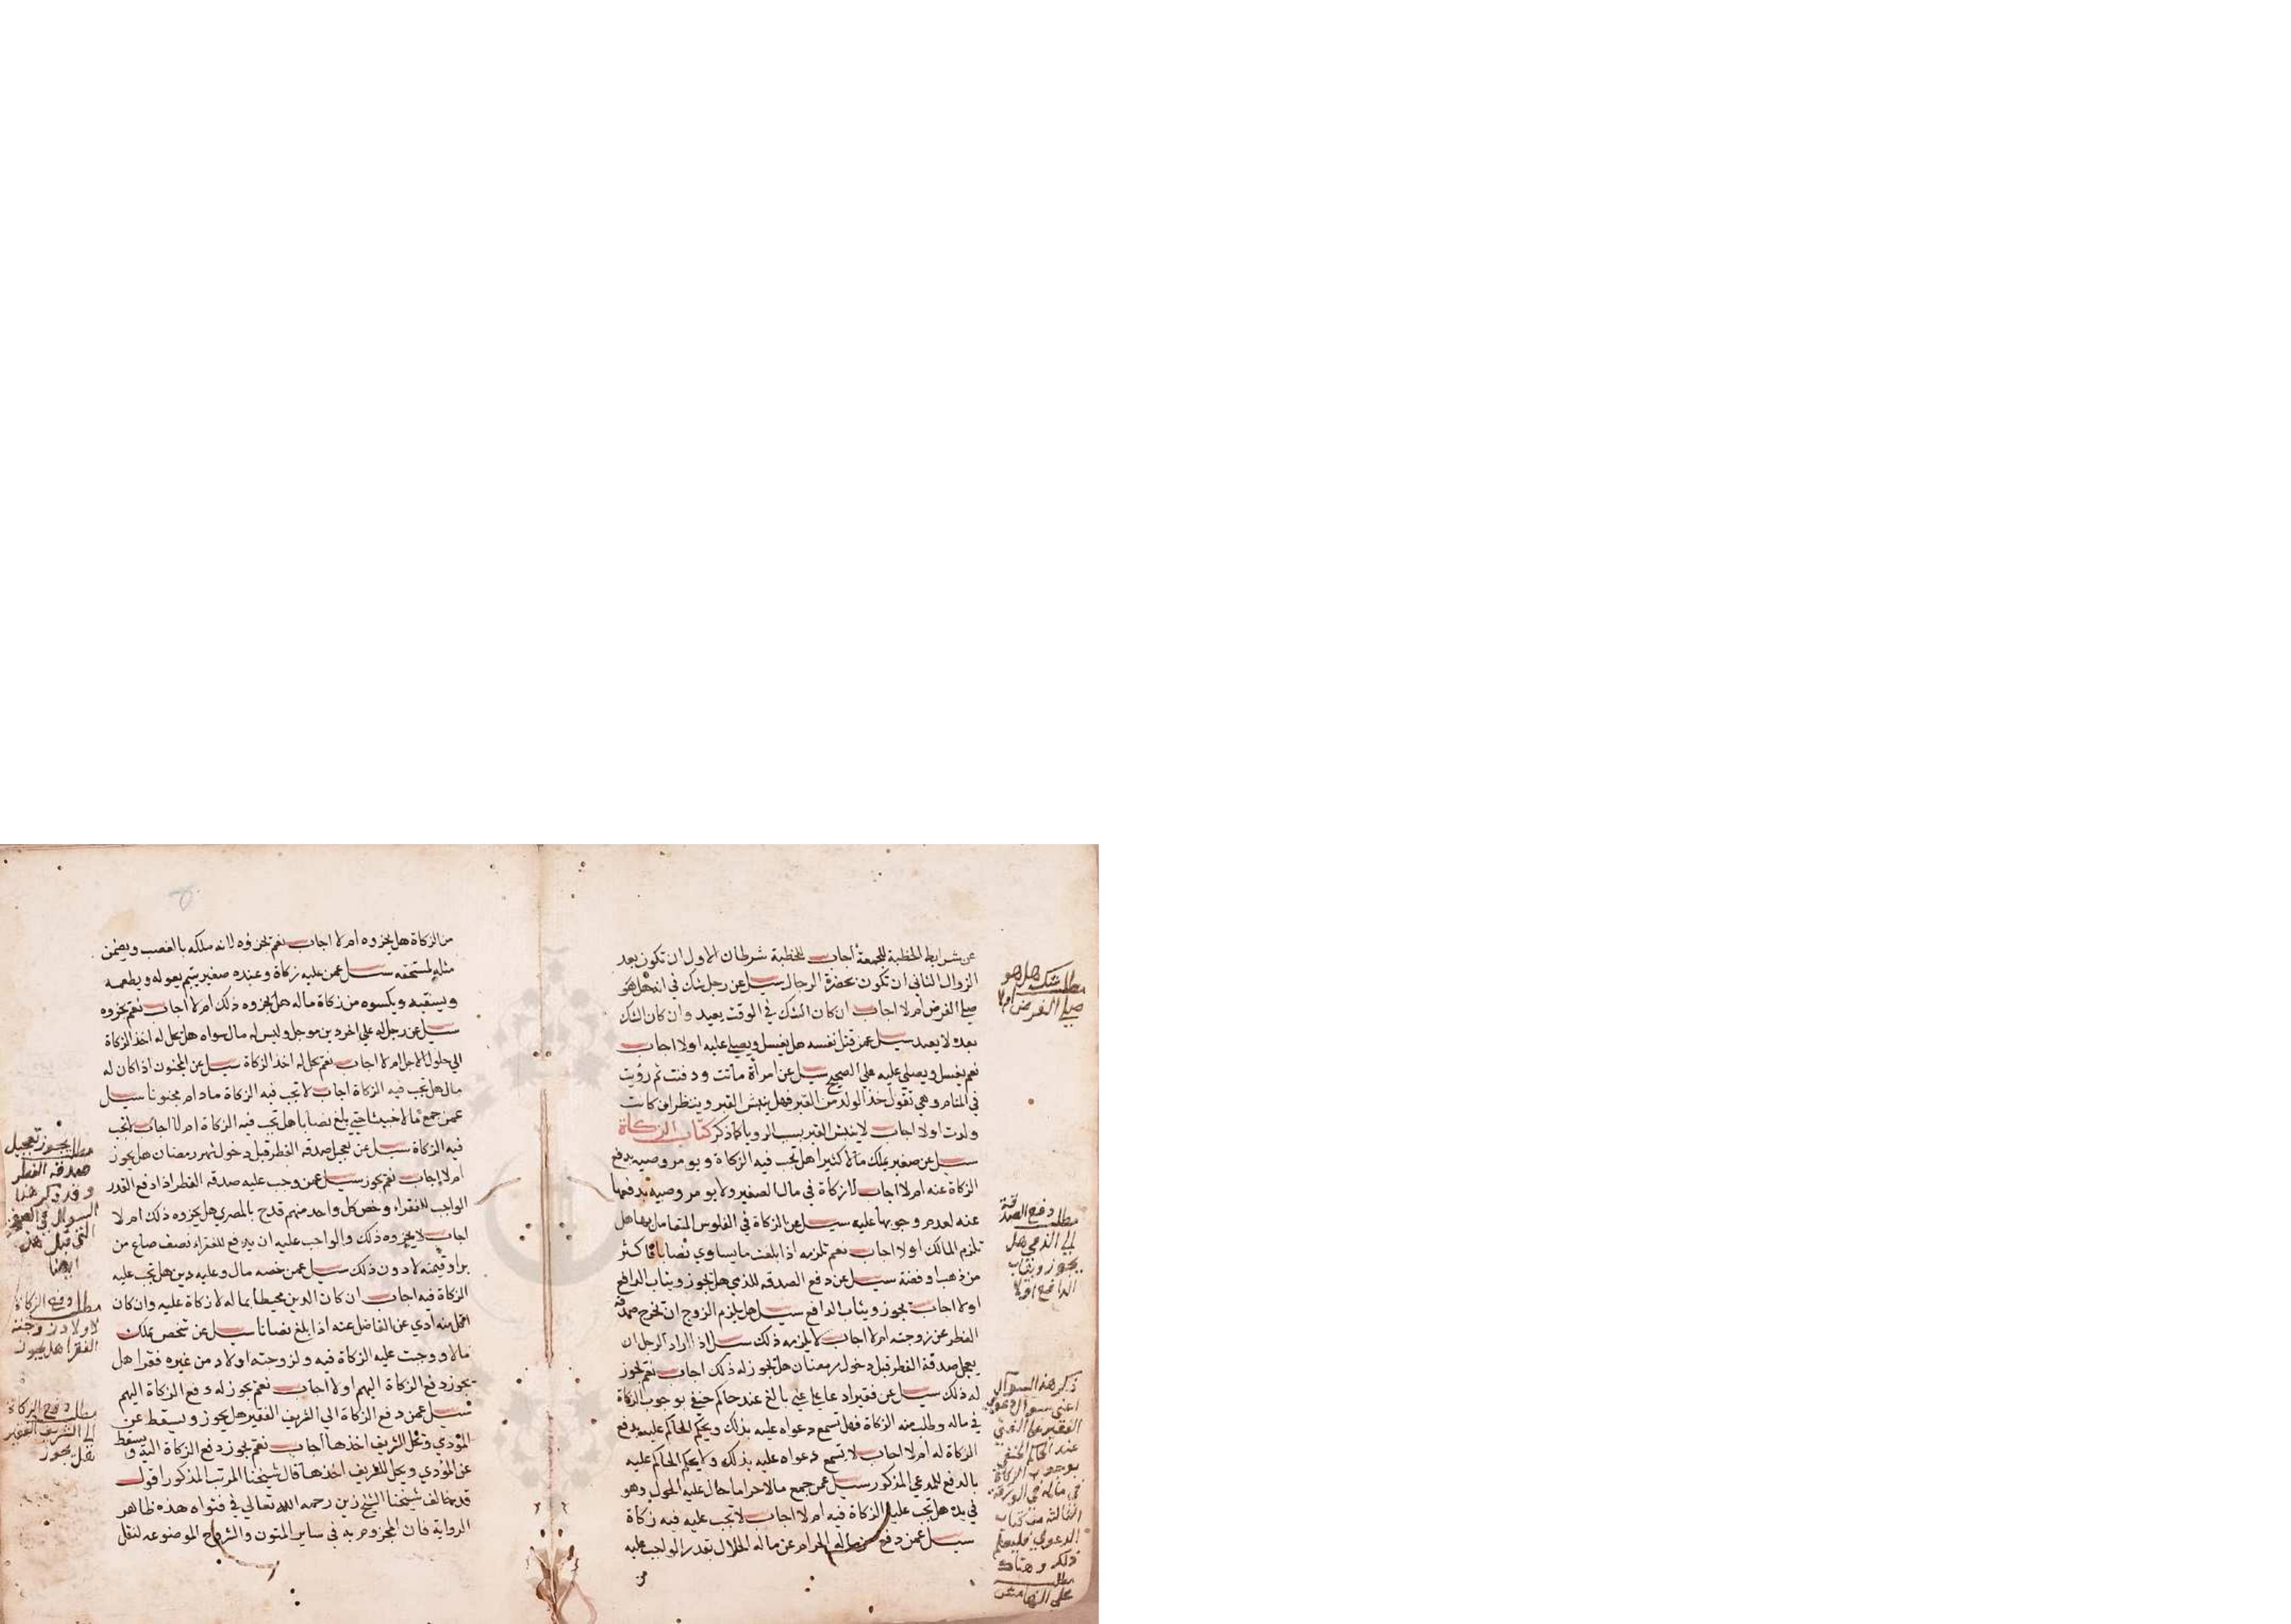 عن شرايط الخطبة للجمعة اجاب للخطبة شرطان الاول ان تكون بعد
الزوال الثاني ان تكون بحضرة الرجال سيل عن رجل شك في انه هل هو
صلي الفرض ام لا اجاب ان كان الشك في الوقت يعيد وان كان الشك
بعده لا يعيد سيل عمن قتل نفسه هل يغسل ويصلي عليه اولا اجاب
نعم يغسل ويصلي عليه علي الصحيح سيل عن امرأة ماتت ودفنت ثم رؤيت
في المنام وهي تقول خذ الولد من القبر فهل ينبش القبر وينظر ان كانت
ولدت اولا اجاب لا ينبش القبر بسبب الرويا كما ذكر كتاب الزكاة
سيل عن صغير يملك مالا كثيرا هل تجب فيه الزكاة ويومر وصيه بدفع
الزكاة عنه ام لا اجاب لا زكاة في مال الصغير ولا يومر وصيه بدفعها
عنه لعدم وجوبها عليه سيل عن الزكاة في الفلوس المتعامل بها هل
تلزم المالك اولا اجاب نعم تلزمه اذا بلغت ما يساوي نصابا فاكثر
من ذهب او فضة سيل عن دفع الصدقه للذمي هل يجوز ويثاب الدافع
اولا اجاب يجوز ويثاب الدافع سيل هل يلزم الزوج ان يخرج صدقة
الفطر عن زوجته ام لا اجاب لا يلزمه ذلك سيل اذا اراد الرجل ان
يعجل صدقة الفطر قبل دخول رمضان هل يجوز له ذلك اجاب نعم يجوز
له ذلك سيل عن فقير ادعا علي غني بالغ عند حاكم حنفي بوجوب الزكاة
في ماله وطلب منه الزكاة فهل تسمع دعواه عليه بذلك ويحكم الحاكم عليه بدفع
الزكاة له ام لا اجاب لا تسمع دعواه عليه بذلك ولا يحكم الحاكم عليه
بالدفع للمدعي المذكور سيل عمن جمع مالا حراما حال عليه الحول وهو
في يده هل تجب عليه الزكاة فيه ام لا اجاب لا تجب عليه فيه زكاة
سيل عمن دفع من ماله الحرام عن ماله الحلال بقدر الواجب عليه
من
مطلب شك هل هو
صلي الفرض ام لا
مطلب دفع الصدقة
الي الذمي هل
يجوز ويثاب
الدافع اولا
ذكر هذا السوال
اعني سوال دعوي
الفقير علي الغني
عند الحاكم الحنفي
بوجوب الزكاة
في ماله في الورقة
الثالثة من كتاب
الدعوي فليعلم
ذلك وهناك
مطلب
علي الهامش
من الزكاة هل يجزوه ام لا اجاب نعم يجزوه لانه ملكه بالغصب ويضمن
مثله لمستحقه سيل عمن عليه زكاة وعنده صغير يتيم يعوله ويطعمه
ويسقيه ويكسوه من زكاة ماله هل يجزوه ذلك ام لا اجاب نعم يجزوه
سيل عن رجل له علي اخر دين موجل وليس له مال سواه هل يحل له اخذ الزكاة
الي حلول الاجل ام لا اجاب نعم يحل له اخذ الزكاة سيل عن المجنون اذا كان له
مال هل تجب فيه الزكاة اجاب لا تجب فيه الزكاة مادام مجنونا سيل
عمن جمع مالا خبيثا حتي بلغ نصابا هل تجب فيه الزكاة ام لا اجاب لا تجب
فيه الزكاة سيل عن تعجيل صدقه الفطر قبل دخول شهر رمضان هل يجوز
ام لا اجاب نعم يجوز سيل عمن وجب عليه صدقه الفطر اذا دفع القدر
الواجب للفقراء وخص كل واحد منهم قدح بالمصري هل يجزوه ذلك ام لا
اجاب لا يجزوه ذلك والواجب عليه ان يدفع للفقراء نصف صاع من
بر او قيمته لا دون ذلك سيل عمن خصه مال وعليه دين هل تجب عليه
الزكاة فيه اجاب ان كان الدين محيطا بماله لا زكاة عليه وان كان
اقل منه ادي عن الفاضل عنه اذا بلغ نصابا سيل عن شخص يملك
مالا ووجبت عليه الزكاة فيه ولزوجته اولاد من غيره فقرا هل
يجوز دفع الزكاة اليهم اولا اجاب نعم يجوز له دفع الزكاة اليهم
سيل عمن دفع الزكاة الي الشريف الفقير هل يجوز ويسقط عن
المؤدي وتحل للشريف اخذها اجاب نعم يجوز دفع الزكاة اليه ويسقط
عن المؤدي ويحل للشريف اخذها قال شيخنا المرتب المذكور اقول
قد خالف شيخنا الشيخ زين رحمه الله تعالي في فتواه هذه ظاهر
الرواية فان المجزوم به في ساير المتون والشروح الموضوعه لنقل
مطلب يجوز تعجيل
صدقه الفطر
وقد ذكر هذا
السوال في الصفحة
التي قبل هذه
ايضا
مطلب دفع الزكاة
لاولاد زوجته
الفقرا هل يجوز
مطلب دفع الزكاة
الي الشريف الفقير
هل يجوز